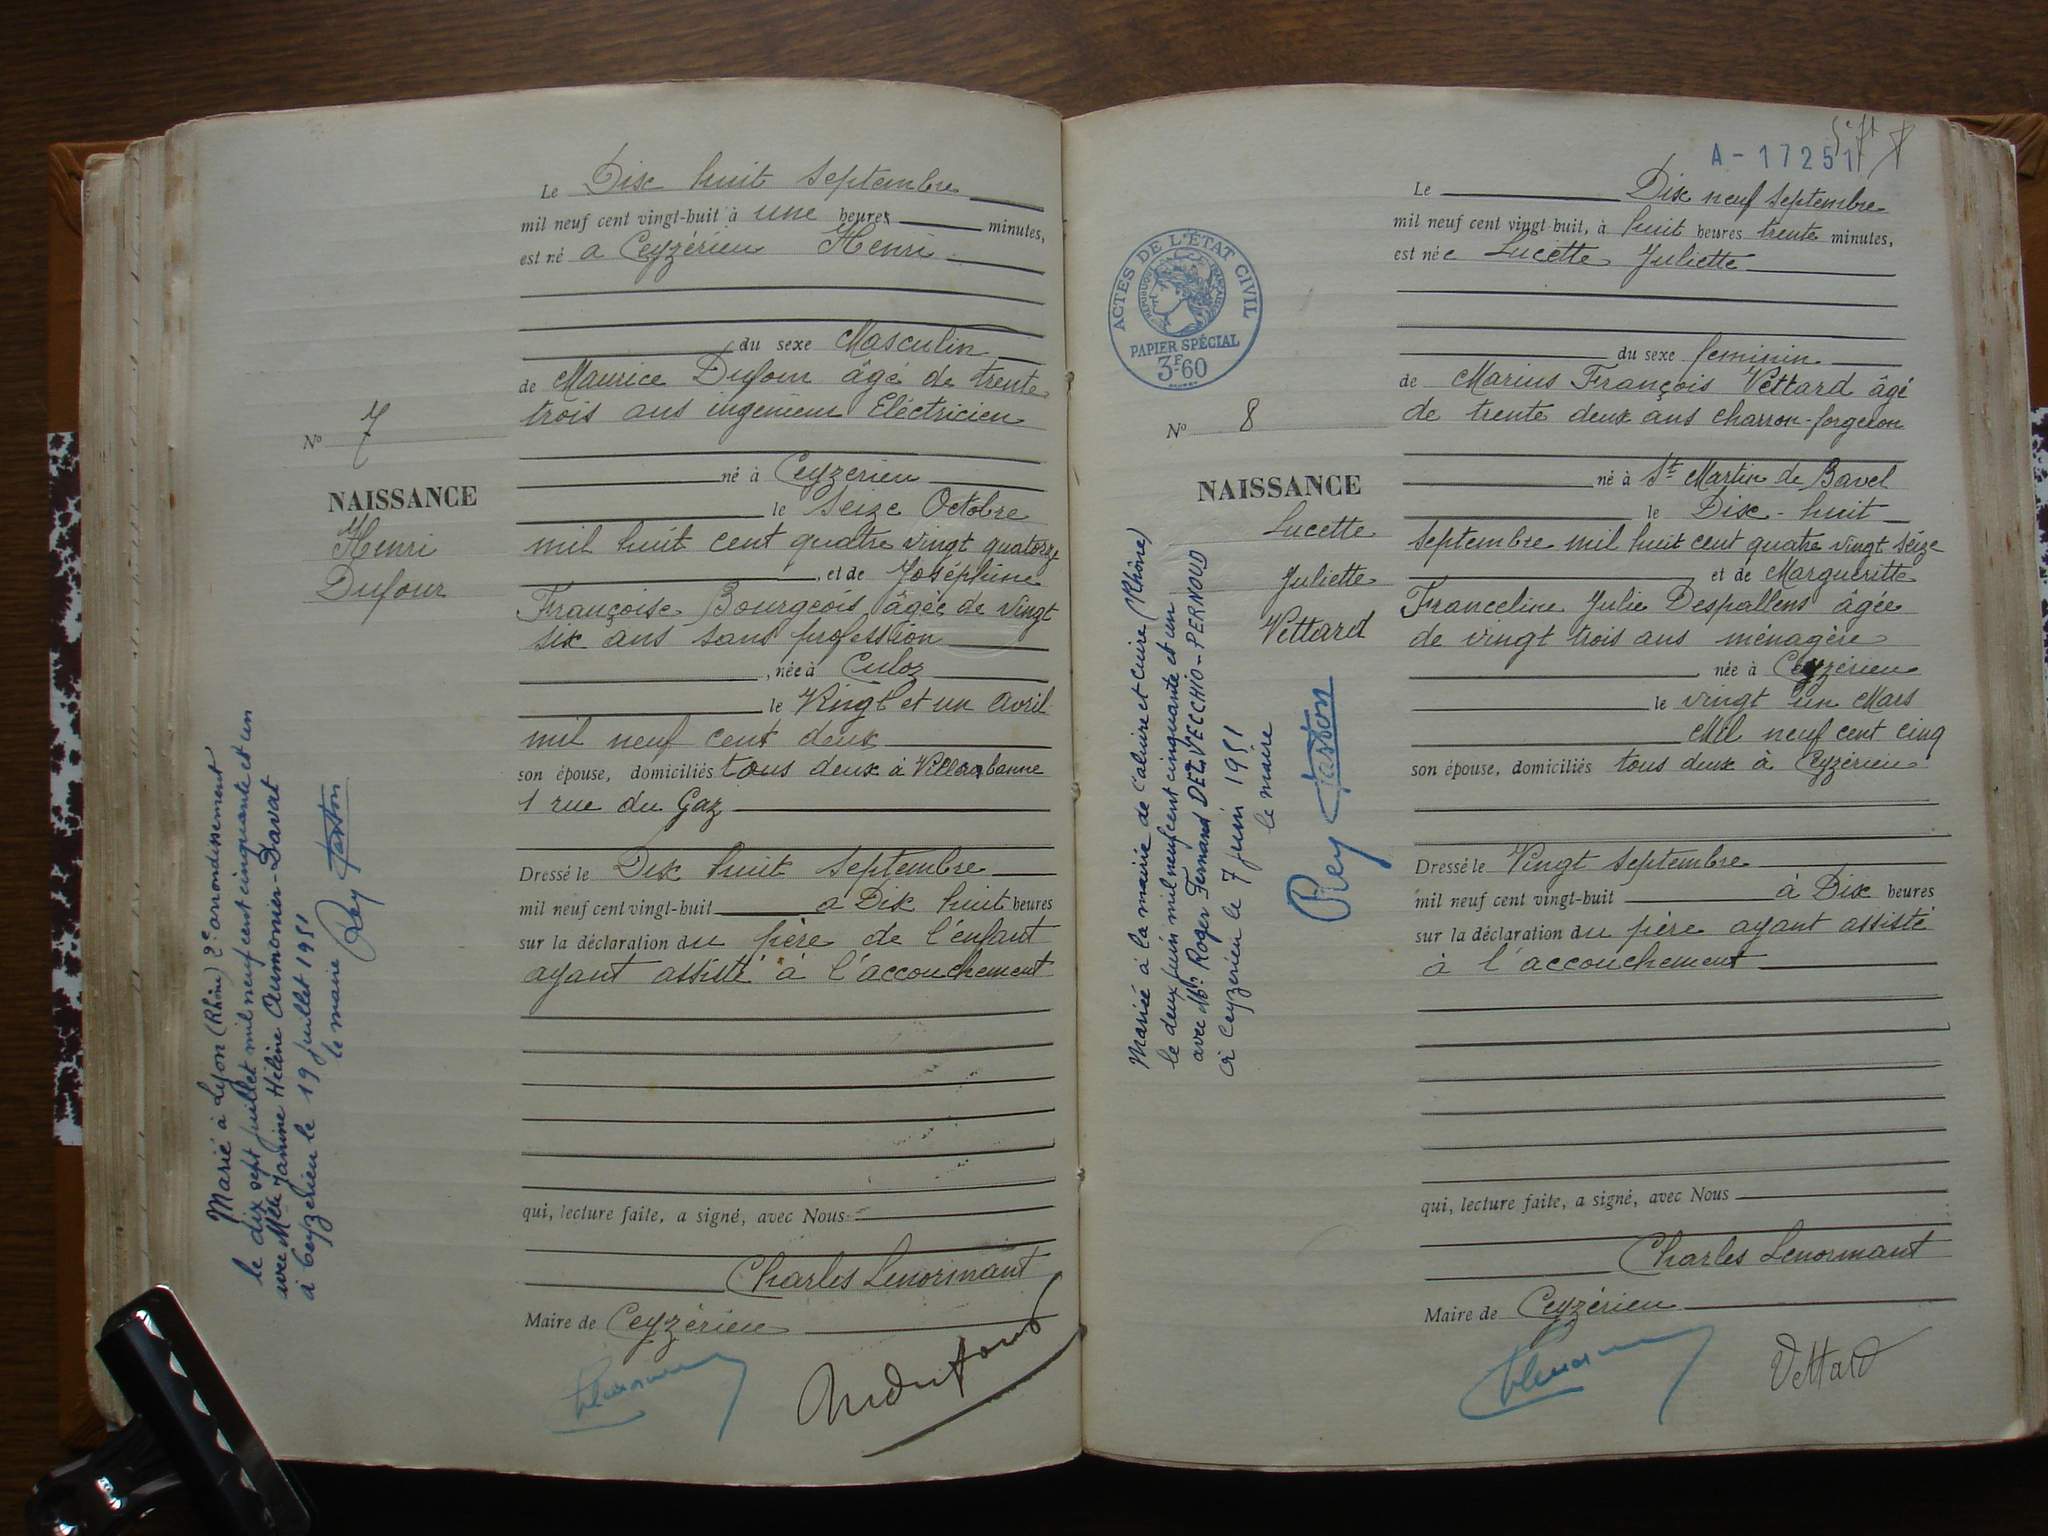 Le Dix huit Septembre
mil neuf cent vingt-huit à une heures minutes,
est né a Ceyzérieu Henri
du sexe Masculin
de Maurice Dufour âgé de trente
trois ans ingenieur Eléctricien
N° 7
né à Ceyzerieu
NAISSANCE
le Seize Octobre
Henri
mil huit cent quatre vingt quatorze
Dufour
, et de Joséphine
Françoise Bourgeois âgée de vingt
six ans sans profession
, née à Culoz
le Vingt et un Avril
mil neuf cent deux
son épouse, domiciliés tous deux à Villeurbanne
1 rue du Gaz
Dressé le Dix huit Septembre
mil neuf cent vingt-huit a Dix huit heures
sur la déclaration du père de l'enfant
ayant assisté à l'accouchement
qui, lecture faite, a signé, avec Nous
Charles Lenormant
Maire de Ceyzérieu
Marié à Lyon (Rhône) 2e arrondissement
le dix sept juillet mil neuf cent cinquante et un
avec Melle Janine Hélène Aumonier-Davat
à Ceyzérieu le 19 juillet 1951
le maire Rey Gaston
A-17251
Le Dix neuf Septembre
mil neuf cent vingt-huit, à huit heures trente minutes,
est née Lucette Juliette
ACTES DE L'ÉTAT CIVIL
RÉPUBLIQUE FRANÇAISE
PAPIER SPÉCIAL
3F60
du sexe feminin
de Marius François Vettard âgé
de trente deux ans charron-forgeron
N° 8
né à St Martin de Bavel
NAISSANCE
le Dix-huit
Lucette
septembre mil huit cent quatre vingt seize
Juliette
et de Marguerite
Vettard
Franceline Julie Despallens âgée
de vingt trois ans ménagère
née à Ceyzérieu
le vingt un Mars
Mil neuf cent cinq
son épouse, domiciliés tous deux à Ceyzérieu
Dressé le Vingt septembre
mil neuf cent vingt-huit à Dix heures
sur la déclaration du père ayant assisté
à l'accouchement
qui, lecture faite, a signé, avec Nous
Charles Lenormant
Maire de Ceyzérieu
Vettard
Mariée à la mairie de Caluire et Cuire (Rhône)
le deux juin mil neuf cent cinquante et un
avec Mr Roger Fernand DEL VECCHIO-PERNOUD
à Ceyzérieu le 7 juin 1951
le maire
Rey Gaston